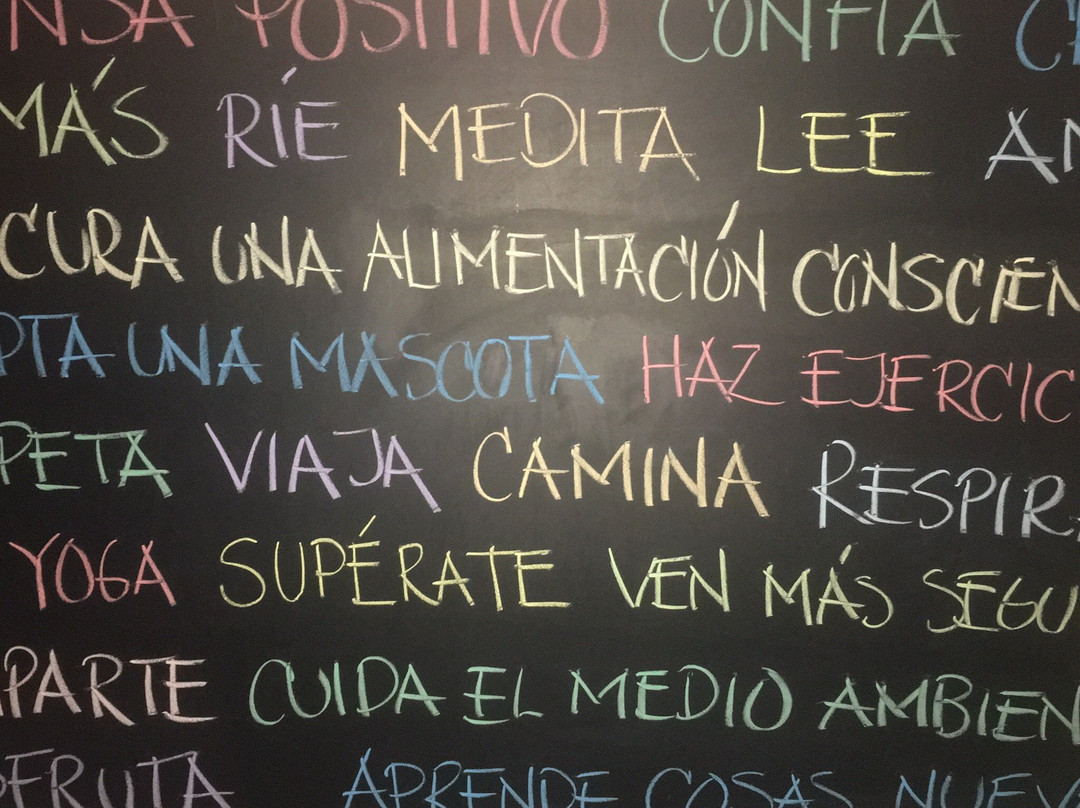 NSA POSITIVO CONFÍA C
MÁS RÍE MEDITA LEE AM
CURA UNA ALIMENTACIÓN CONSCIEN
PTA UNA MASCOTA HAZ EJERCIC
PETA VIAJA CAMINA RESPIRA
YOGA SUPÉRATE VEN MÁS SEGU
PARTE CUIDA EL MEDIO AMBIEN
FRUTA APRENDE COSAS NUEV